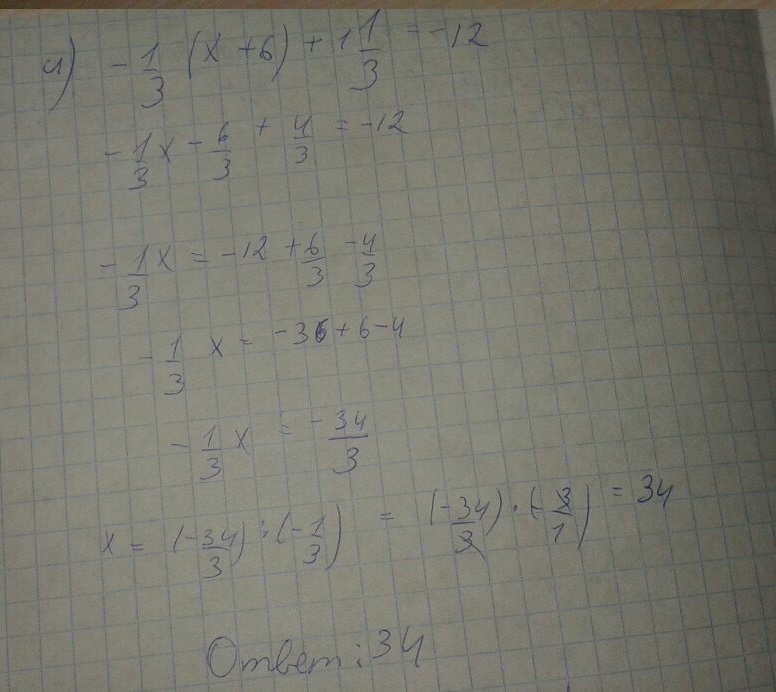 4) -1/3 (x+6) + 1 1/3 = -12
-1/3 x - 6/3 + 4/3 = -12
-1/3 x = -12 + 6/3 - 4/3
-1/3 x = -36+6-4
-1/3 x = -34/3
x = (-34/3) : (-1/3) = (-34/3) · (-3/1) = 34
Ответ: 34